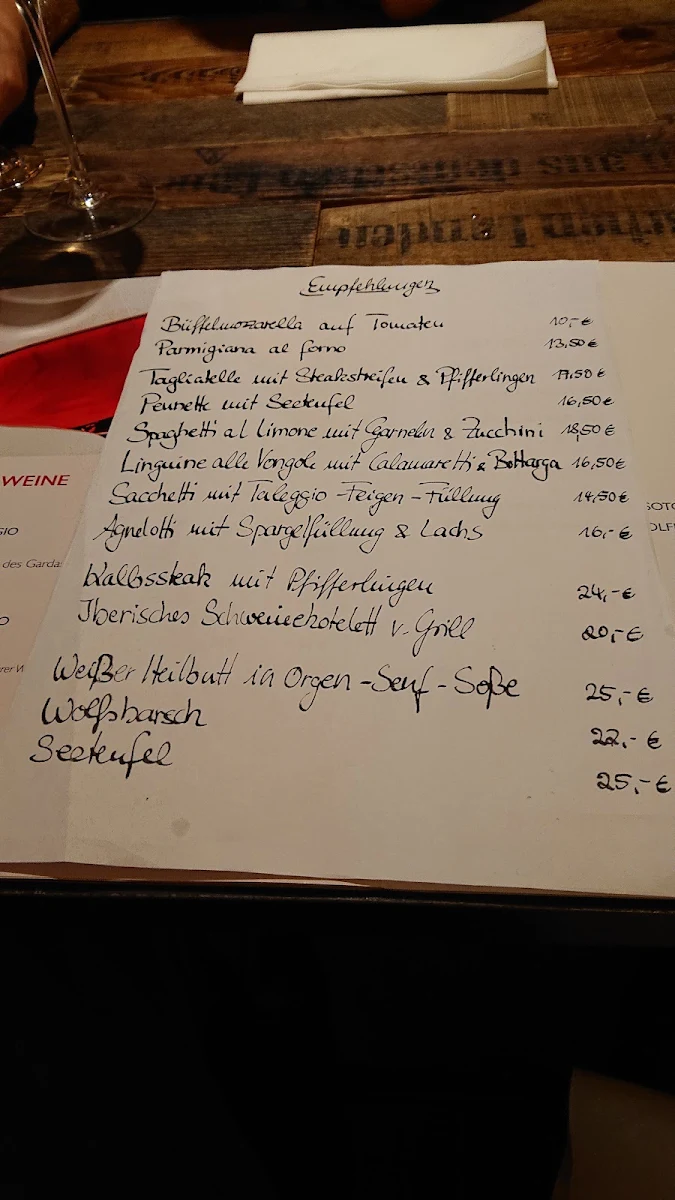 Empfehlungen
Büffelmozzarella auf Tomaten 10,-€
Parmigiana al forno 13,50€
Tagliatelle mit Steakstreifen & Pfifferlingen 17,50€
Pennette mit Seeteufel 16,50€
Spaghetti al Limone mit Garnelen & Zucchini 18,50€
Linguine alle Vongole mit Calamaretti & Bottarga 16,50€
Sacchetti mit Taleggio-Feigen-Füllung 14,50€
Agnelotti mit Spargelfüllung & Lachs 16,-€
Kalbssteak mit Pfifferlingen 24,-€
Iberisches Schweinekotelett v. Grill 20,-€
Weißer Heilbutt in Orgen-Senf-Soße 25,-€
Wolfsbarsch 22,-€
Seeteufel 25,-€
WEINE
des Garda